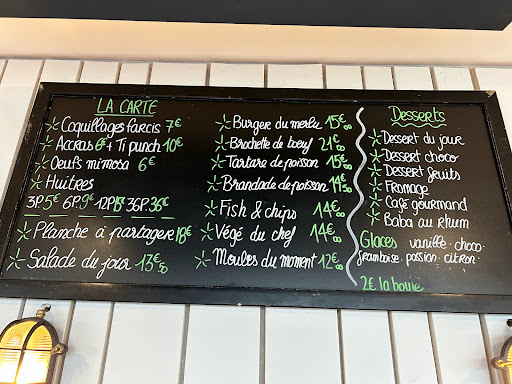 LA CARTE
Coquillages farcis 7€
Accras 6 + Ti punch 10€
Oeufs mimosa 6€
Huitres
3P. 5€ 6P. 9€ 12P. 18€ 36P. 36€
Planche à partager 18€
Salade du jour 13€50
Burger du merlu 15€00
Brochette de bœuf 21€00
Tartare de poisson 15€00
Brandade de poisson 14€50
Fish & chips 14€00
Végé du chef 14€00
Moules du moment 12€00
Desserts
Dessert du jour
Dessert choco
Dessert fruits
Fromage
Café gourmand
Baba au rhum
Glaces vanille · choco ·
framboise · passion · citron ·
2€ la boule